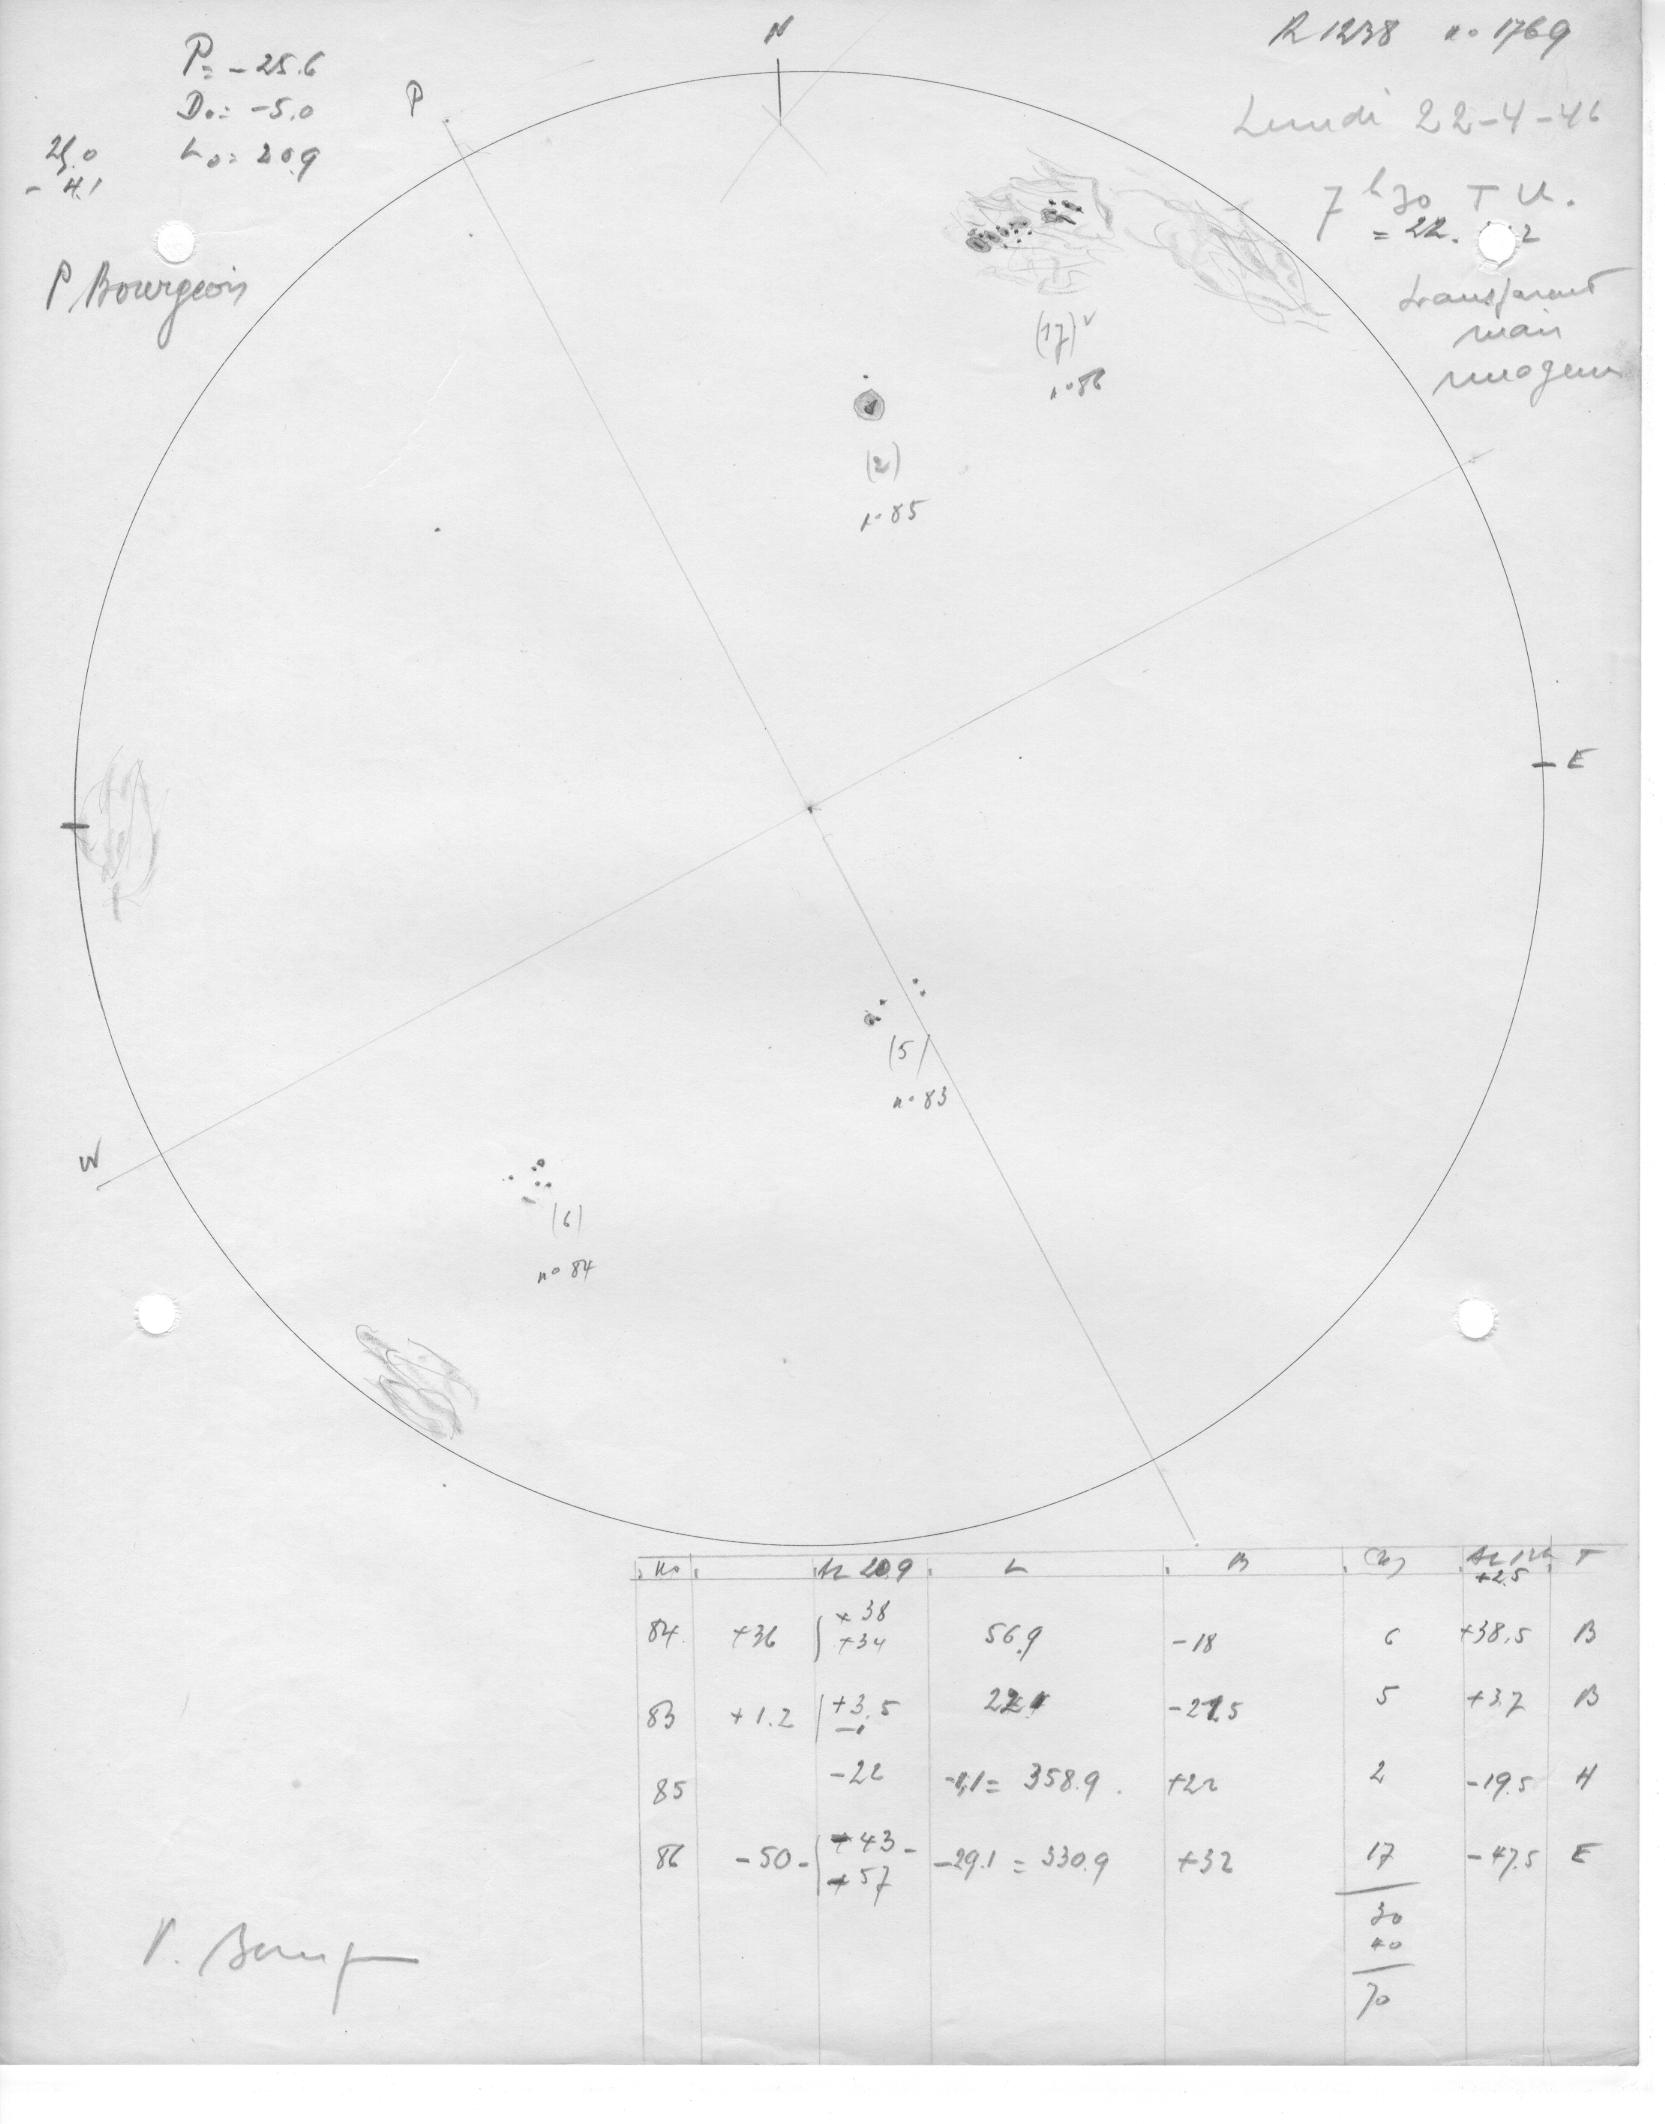 N
R 1238 no 1769
P = -25.6
P
Do = -5.0
Lundi 22-4-46
25.0
Lo = 20.9
- 4.1
7h30 T U.
= 22.
P Bourgeois
transparent
mais
nuageux
(17)
no 86
(2)
no 85
E
(5)
no 83
W
(6)
no 84
No Ac 20.9 L B T
+2.5
84 +36 +38 56.9 -18 6 +38.5 B
+34
83 +1.2 +3.5 22.1 -21.5 5 +3.7 B
-1
85 -22 -1.1 = 358.9 +22 2 -19.5 H
86 -50 -43 -29.1 = 330.9 +32 17 -47.5 E
-57
30
40
70